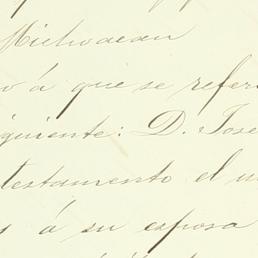 Michoacan
á que se refer
iguiente: D. Jose
testamento el
á su esposa